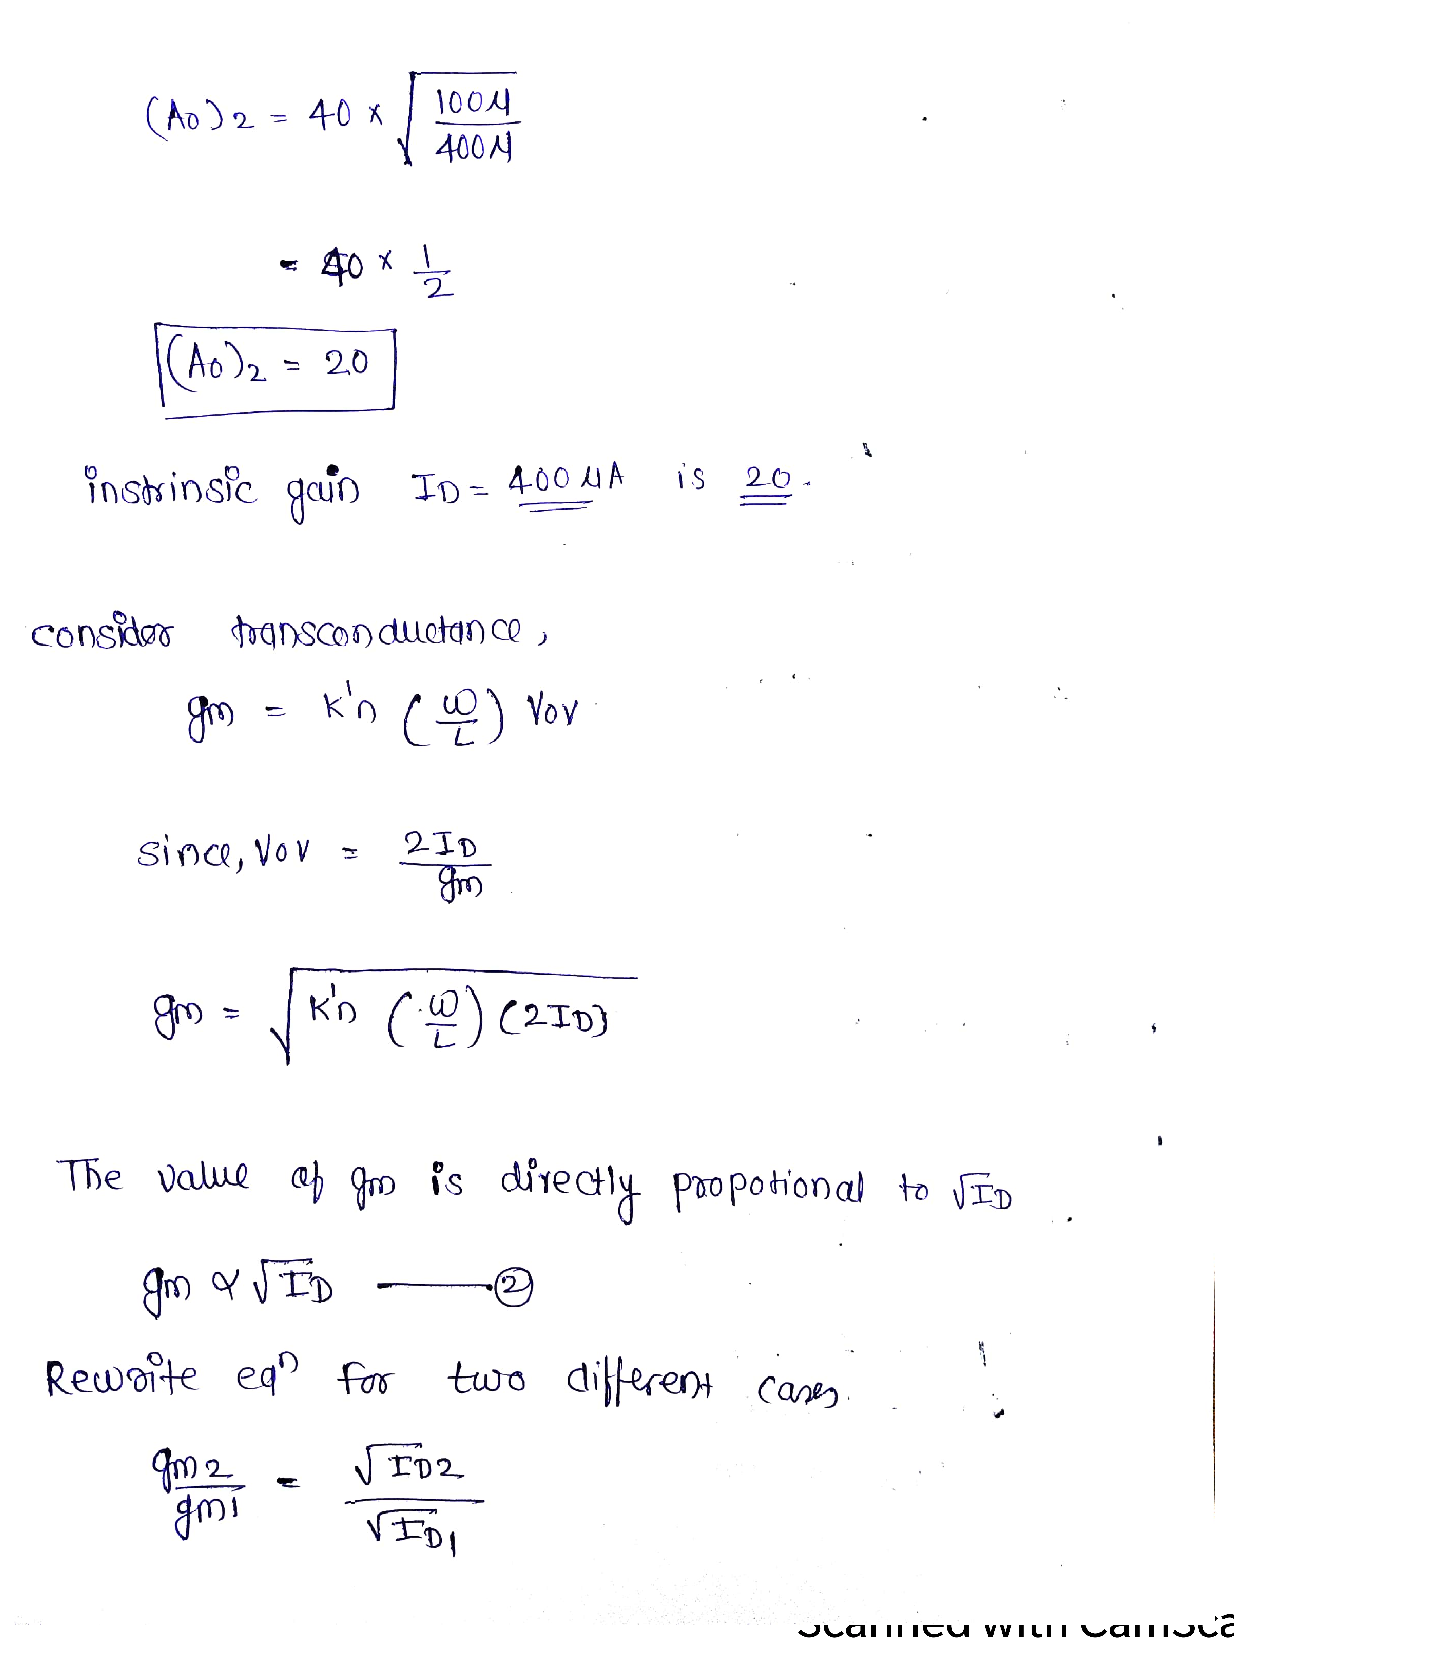 (A0)2 = 40 × √(100μ/400μ)
= 40 × 1/2
(A0)2 = 20
instrinsic gain ID = 400 μA is 20.
consider transconductance,
gm = k'n (W/L) Vov
since, Vov = 2ID/gm
gm = √(k'n (W/L) (2ID))
The value of gm is directly propotional to √ID
gm α √ID —— ②
Rewrite eqn for two different cases.
gm2/gm1 = √ID2/√ID1